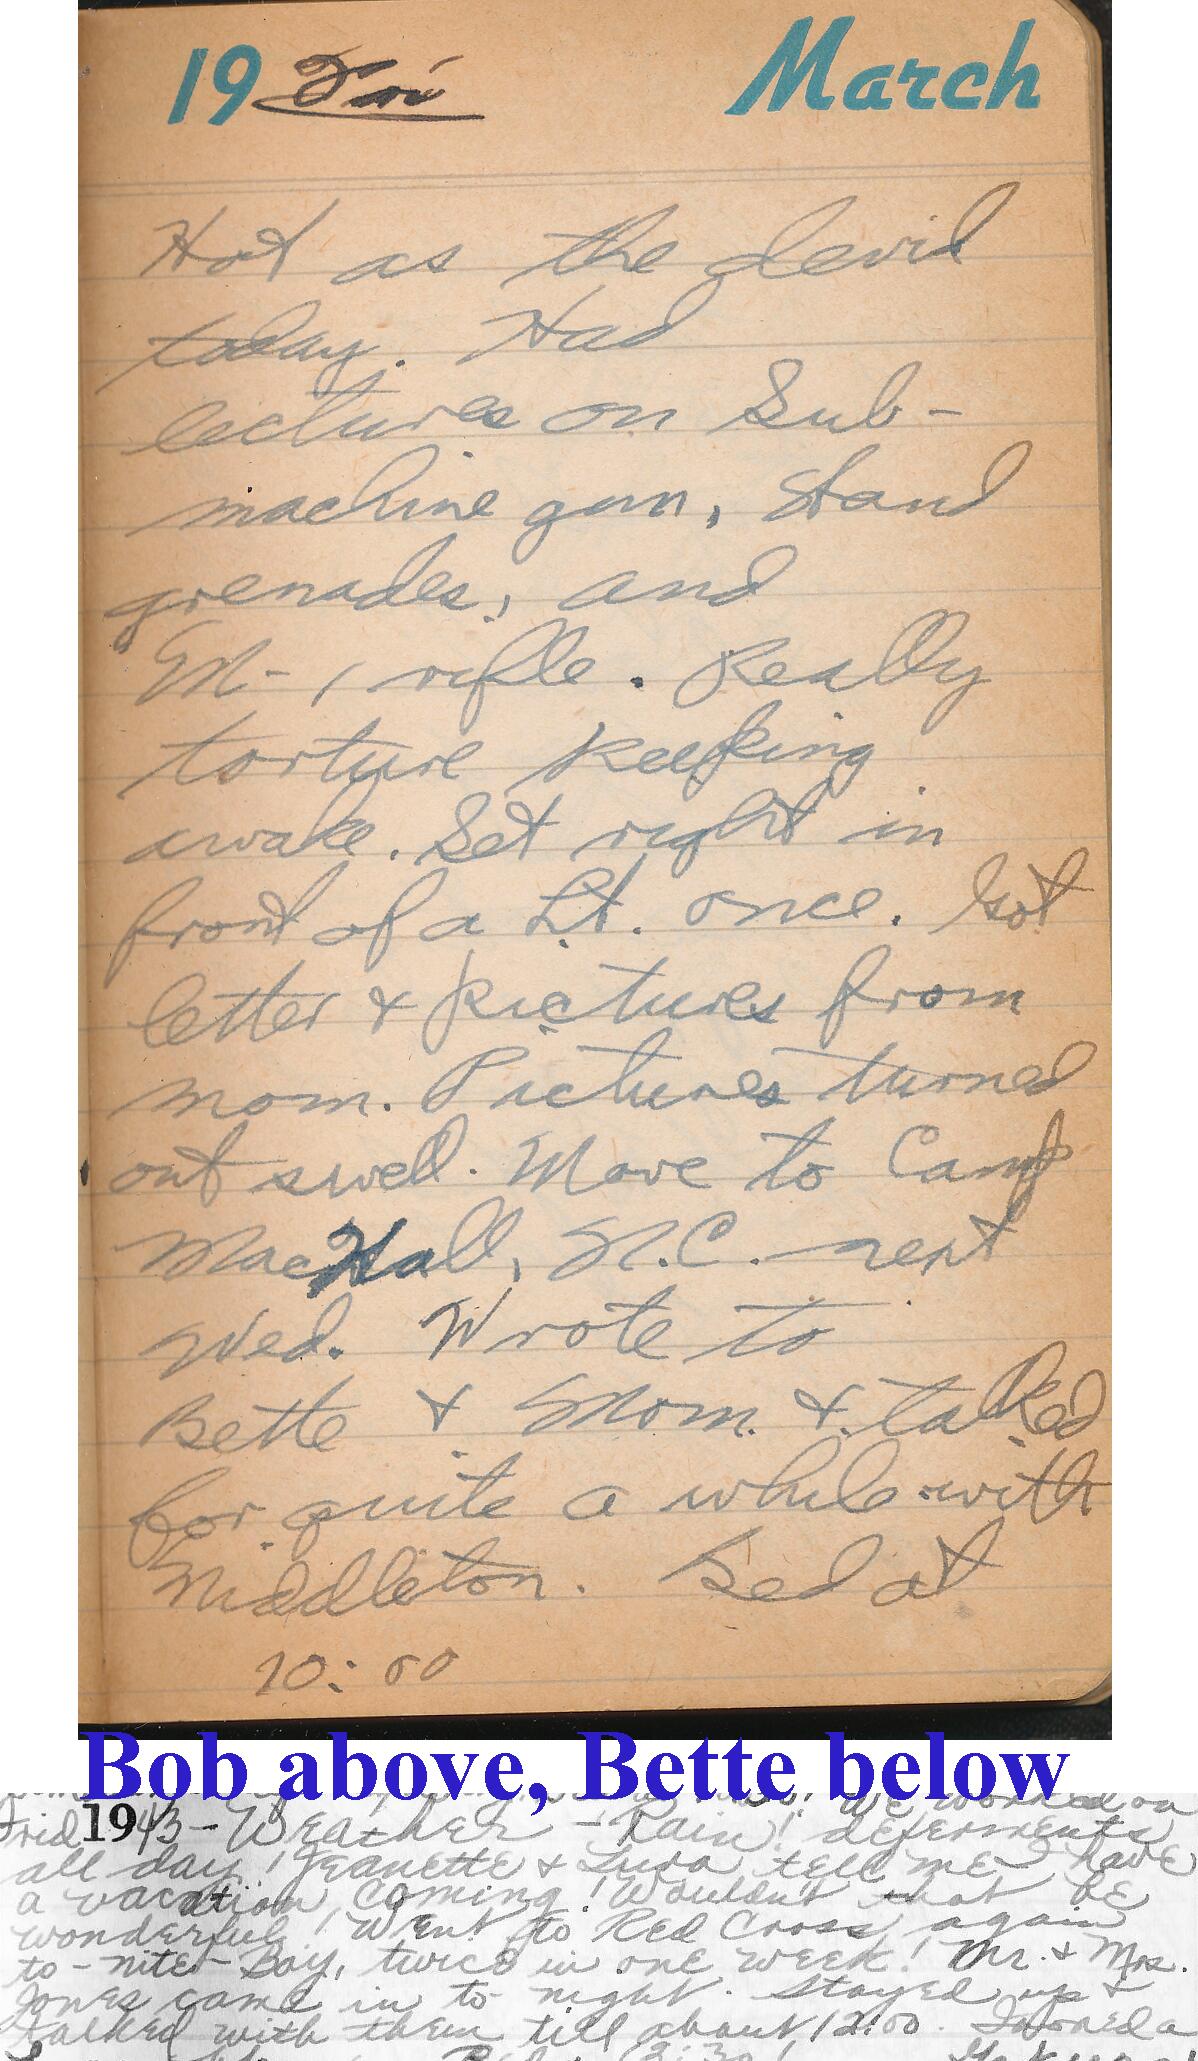 19 Fri March
Hot as the devil
today. Had
lectures on Sub-
machine gun, Hand
grenades, and
M-1 rifle. Really
torture keeping
awake. Set right in
front of a Lt. once. Got
letter & pictures from
mom. Pictures turned
out swell. Move to Camp
MacHall, N.C. next
Wed. Wrote to
Bette & Mom. & talked
for quite a while with
Middleton. Bed at
10:00
Bob above, Bette below
We worked on
Frid 1943 - Weather - Rain! deferments
all day! Jeanette & tell me I have
a vacation coming! Wouldn't that be
wonderful! Went to Red Cross again
to-nite - Boy, twice in one week! Mr. & Mrs.
Jones came in to night. Stayed up &
talked with them till about 12:00. Ironed a